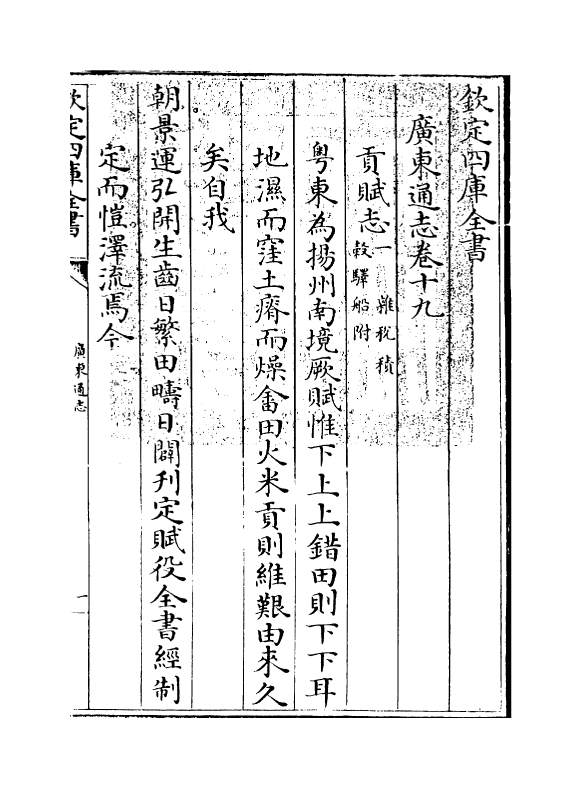 欽定四庫全書
廣東通志卷十九
貢賦志一 雜稅積
穀驛船附
粤東為揚州南境厥賦惟下上上錯田則下下耳
地濕而窪土瘠而燥畬田火米貢則維艱由來久
矣自我
朝景運弘開生齒日繁田疇日闢刋定賦役全書經制
定而愷澤流焉今
欽定四庫全書
廣東通志
一